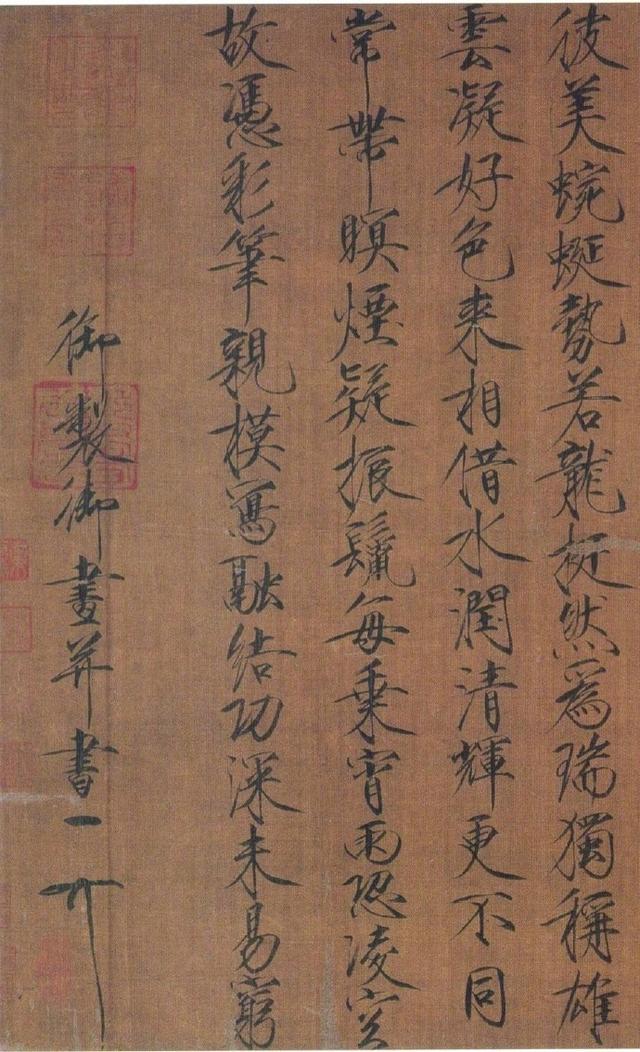 彼美蜿蜒勢若龍挺然爲瑞獨稱雄
雲凝好色來相借水潤清輝更不同
常帶暝煙疑振鬣每乘宵雨恐凌空
故憑彩筆親模寫融結功深未易窮
御製御畫并書